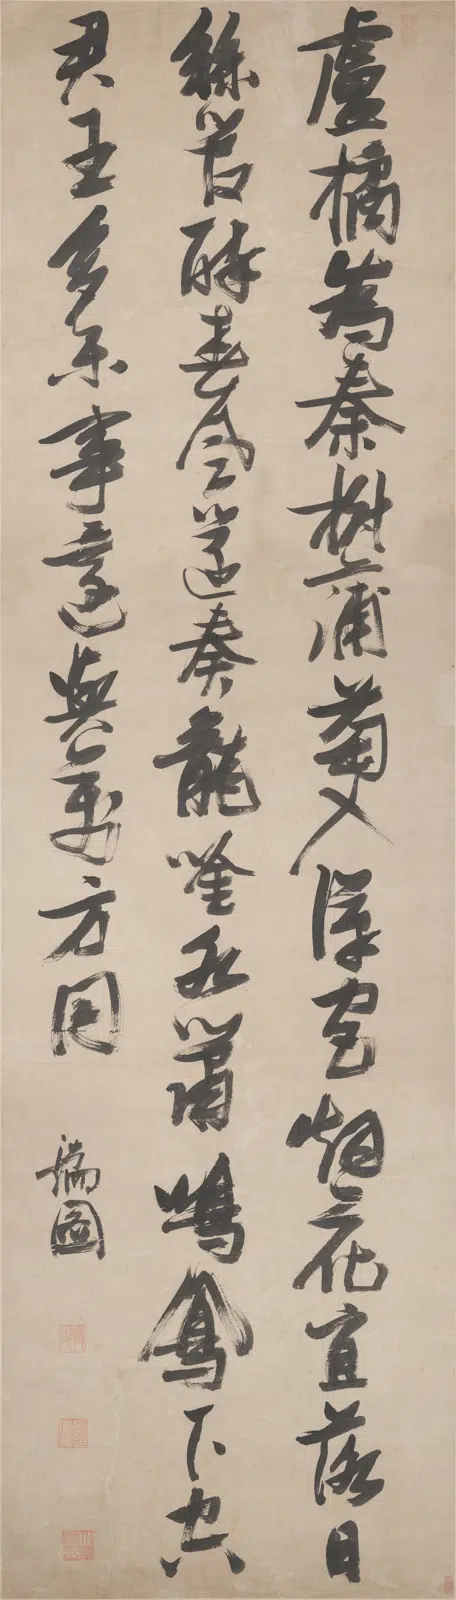 盧橘為秦樹蒲萄入漢宮烟花宜落日
絲管醉春風笛奏龍唫水簫鳴鳳下空
君王多樂事還與萬方同
瑞圖